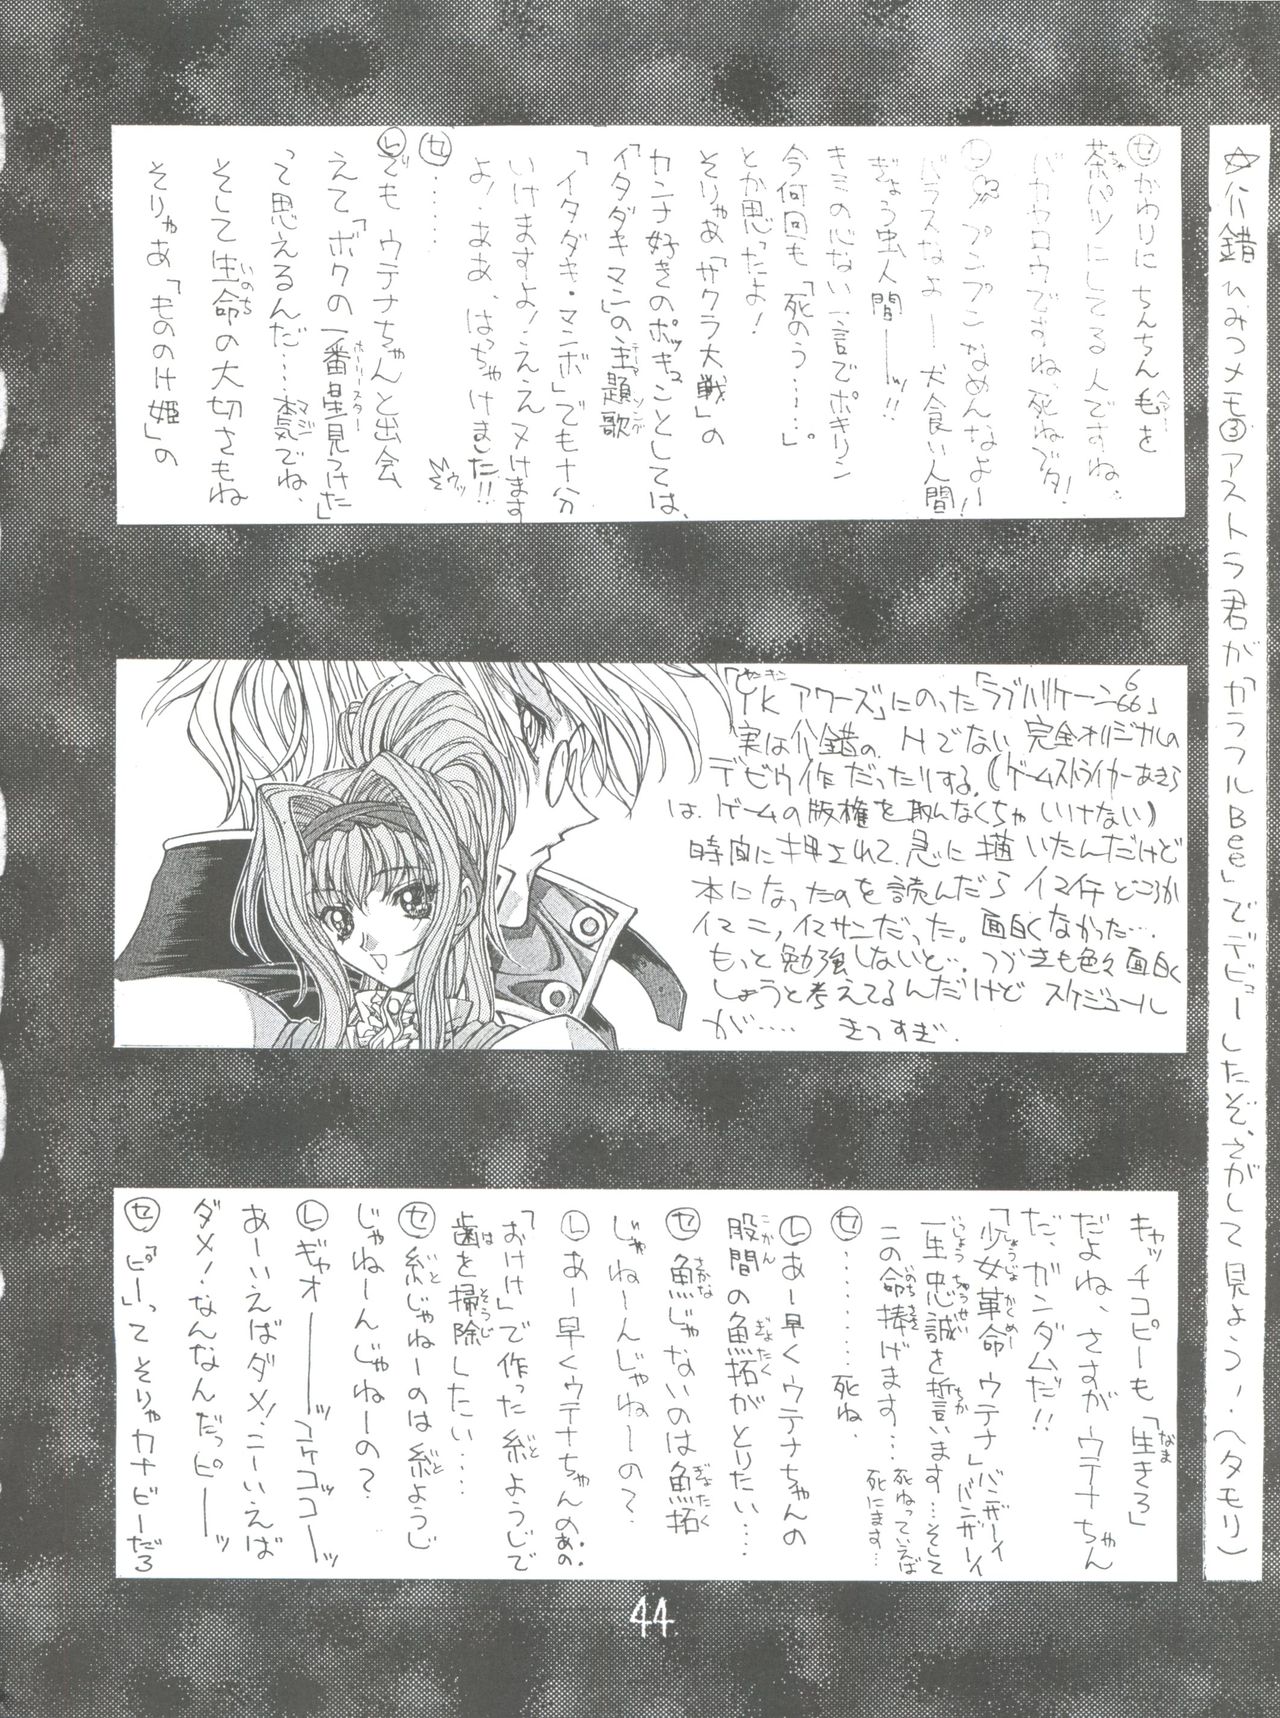 ☆介錯ひみつメモ③アストラ君が「カラフルBee」でデビューしたぞ、さがして見よう!(ヘタモリ)
セかわりにちんちん毛を
茶パツにしてる人ですね。
バカヤロウですね、死ねブタ!
プンプンなめんなよー!
バラスなよー犬食い人間
ぎょう虫人間――ッ!!
キミの心ない一言でポキリン
今何回も「死のう……。」
とか思ったよ!
そりゃあ「サクラ大戦」の
カンナ好きのポッキュことしては、
「イタダキマン」の主題歌
「イタダキ・マンボ」でも十分
いけますよ!ええヌけます
よ!ああ、はっちゃけました!!
セ……
レでもウテナちゃんと出会
えて「ボクの一番星見つけた」
って思えるんだ…本気でね、
そして生命の大切さもね
そりゃあ「もののけ姫」の
「YKアワーズ」にのった「ラブハリケーン666」
実は介錯の、Hでない完全オリジナルの
デビウ作だったりする。(ゲームストライカーあきら
は、ゲームの版権を取んなくちゃいけない)
時間に押されて、急に描いたんだけど
本になったのを読んだらイマイチどころか
イマニ、イマサンだった。面白くなかった…
もっと勉強しないと…、つづきも色々面白く
しようと考えてるんだけどスケジュール
が…… きつすぎ.
キャッチコピーも「生きろ」
だよね、さすがウテナちゃん
だ、ガンダムだ!!
「少女革命ウテナ」バンザーイバンザーイ
一生忠誠を誓います…そして
この命捧げます…死ねっていえば死にます…
セ………死ね.
レあー早くウテナちゃんの
股間の魚拓がとりたい…
セ魚じゃないのは魚拓
じゃねーんじゃねーの?
レあー早くウテナちゃんのあの
「おけけ」で作った糸ようじで
歯を掃除したい…
セ糸じゃねーのは糸ようじ
じゃねーんじゃねーの?
レギャオ――ッコケコッコーッ
あーいえばダメ!こーいえば
ダメ!なんなんだっピ――ッ
セ「ピー」ってそりゃカナビーだろ
44